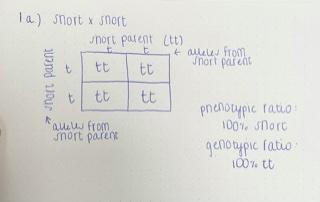 1a) short x short
short parent (tt)
t t
← alleles from
short parent
short parent
t tt tt
t tt tt
↖ alleles from
short parent
phenotypic ratio:
100% short
genotypic ratio:
100% tt